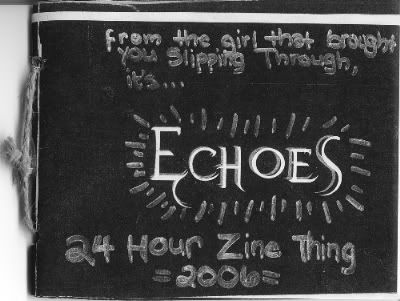 from the girl that brought
you slipping Through,
it's...
ECHOES
24 Hour Zine Thing
=2006=